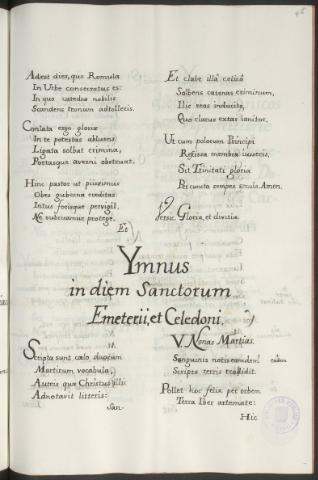 Adest dies, qua Romula
In Urbe consecratus es:
In qua cathedra nobilis
Scandens tronum adtollecis.
Conlata ergo gloria
In te potestas abluens
Ligata solbat crimina,
Portasque averni obstruat.
Hinc pastor ut piissimus
Oves guberna creditas:
Intus forisque pervigil,
Ne subruamur protege.
Et
Et clabe illa celica
Solbens catenas criminum,
Illic reos inducito,
Quo clarus extas janitor.
Ut cum polorum Principi
Refusa membra junxeris,
Sit Trinitati gloria
Per cuncta semper secula. Amen.
Gloria, et divitiæ.
Ymnus
in diem Sanctorum
Emeterii, et Celedoni.
V. Nonas Martias.
Scripta sunt cælo duorum
Martirum vocabula,
Aureis quæ Christus illic
Adnotavit litteris:
San-
Sanguinis notis eamdem
Scripta terris tradidit.
Pollet hoc felix per orbem
Terra Iber
Hic